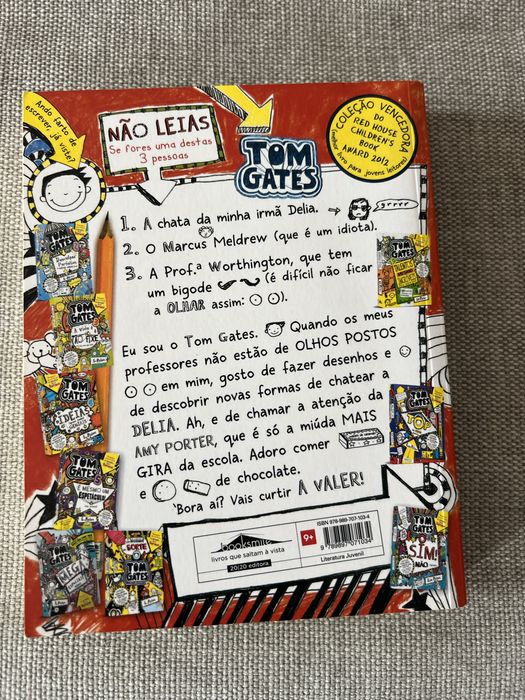 Ando farto de
escrever, já viste?
NÃO LEIAS
Se fores uma destas
3 pessoas
COLEÇÃO VENCEDORA
DO
RED HOUSE
CHILDREN'S
BOOK
AWARD 2012
(melhor livro para jovens leitores)
TOM
GATES
1. A chata da minha irmã Delia.
grrrr
2. O Marcus Meldrew (que é um idiota).
3. A Prof.ª Worthington, que tem
um bigode (é difícil não ficar
a OLHAR assim: ).
Eu sou o Tom Gates. Quando os meus
professores não estão de OLHOS POSTOS
em mim, gosto de fazer desenhos e
de descobrir novas formas de chatear a
DELIA. Ah, e de chamar a atenção da
AMY PORTER, que é só a miúda MAIS
GIRA da escola. Adoro comer
e de chocolate.
'Bora aí? Vais curtir À VALER!
TOM
GATES
TOM
GATES
TÃO FIXE
TOM
GATES
IDEIAS
TOM
GATES
É MESMO UM
ESPETÁCULO
TOM
GATES
SORTE
TOM
GATES
TOM
GATES
TOM
GATES
TOP
TOM
GATES
SIM!
NÃO
booksmile
livros que saltam à vista
20|20 editora
9+
ISBN 978-989-707-103-4
9 789897 071034
Literatura Juvenil